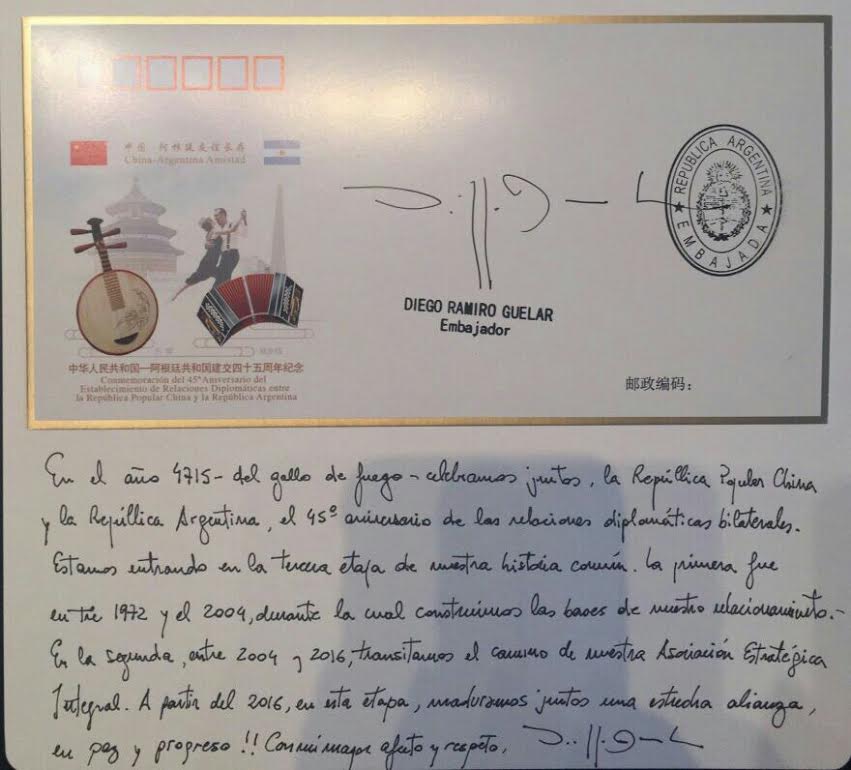 中国-阿根廷友谊长存
China-Argentina Amistad
中华人民共和国—阿根廷共和国建交四十五周年纪念
Conmemoración del 45º Aniversario del
Establecimiento de Relaciones Diplomáticas entre
la República Popular China y la República Argentina
DIEGO RAMIRO GUELAR
Embajador
REPUBLICA ARGENTINA
EMBAJADA
邮政编码：
En el año 4715- del gallo de fuego - celebramos juntos, la República Popular China
y la República Argentina, el 45º aniversario de las relaciones diplomáticas bilaterales.
Estamos entrando en la tercera etapa de nuestra historia común. La primera fue
entre 1972 y el 2004, durante la cual construimos las bases de nuestro relacionamiento.-
En la segunda, entre 2004 y 2016, transitamos el camino de nuestra Asociación Estratégica
Integral. A partir del 2016, en esta etapa, maduramos juntos una estrecha alianza,
en paz y progreso!! Con mi mayor afecto y respeto,